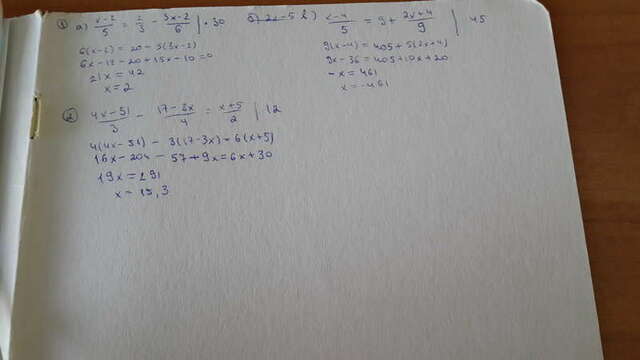 ① а) x-2/5 = 2/3 - 3x-2/6 | · 30
6(x-2) = 20 - 5(3x-2)
6x - 12 - 20 + 15x - 10 = 0
21x = 42
x = 2
x-4/5 = 9 + 2x+4/9 | 45
9(x-4) = 405 + 5(2x+4)
9x - 36 = 405 + 10x + 20
-x = 461
x = -461
② 4x-51/3 - 17-3x/4 = x+5/2 | 12
4(4x - 51) - 3(17-3x) = 6(x+5)
16x - 204 - 57 + 9x = 6x + 30
19x = 291
x = 15,3